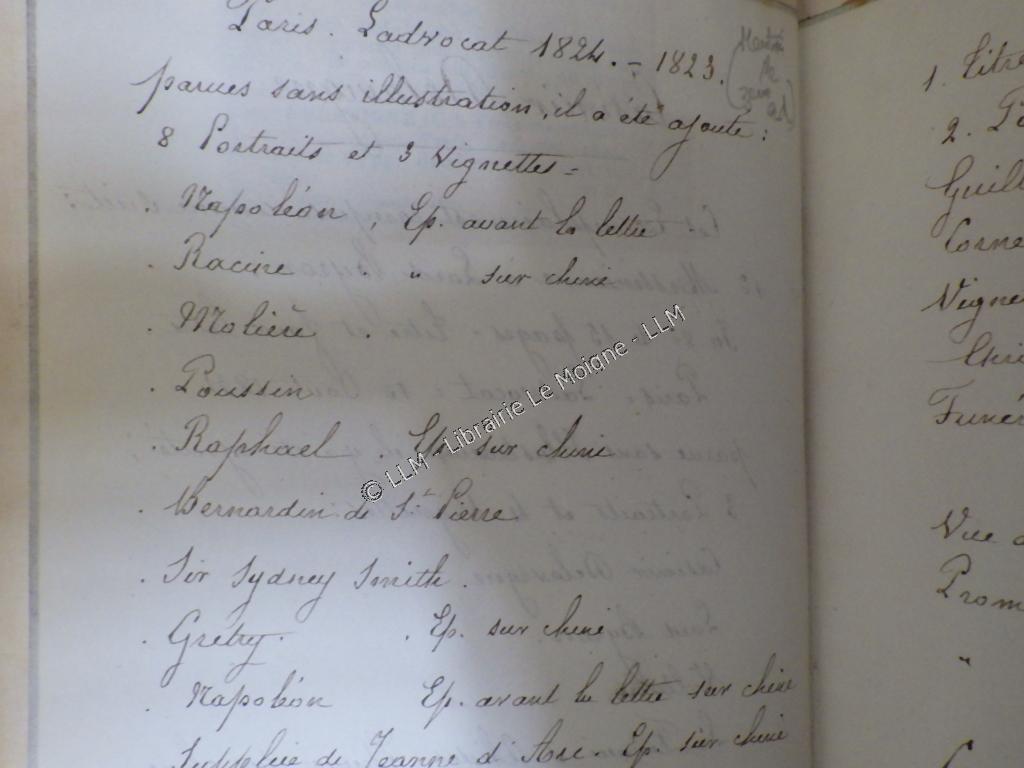 Paris. Ladvocat 1824. - 1823.
parues sans illustration, il a été ajouté :
8 Portraits et 3 Vignettes =
. Napoléon, Ep. avant la lettre
. Racine . " sur chine
. Molière .
. Poussin
. Raphael . Ep. sur chine
. Bernardin de St Pierre
. Sir Sydney Smith .
. Gretry . . Ep. sur chine
. Napoléon Ep. avant la lettre sur chine
Supplice de Jeanne d'Arc - Ep. sur chine
© LLM - Librairie Le Moigne - LLM
1. Titre
2.
Guill
Corne
Vigne
Funér
Vue d
Prom
"